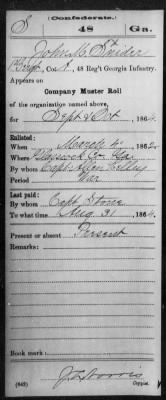 (Confederate.)
S 48 Ga.
John M. Snider
1st Sergt, Co. , 48 Reg't Georgia Infantry.
Appears on
Company Muster Roll
of the organization named above,
for Sept & Oct, 1864.
Enlisted:
When March 4, 1862.
Where
By whom Capt.
Period War
Last paid:
By whom Capt. Stone
To what time Aug. 31, 1864.
Present or absent Present
Remarks:
Book mark:
(642) Copyist.